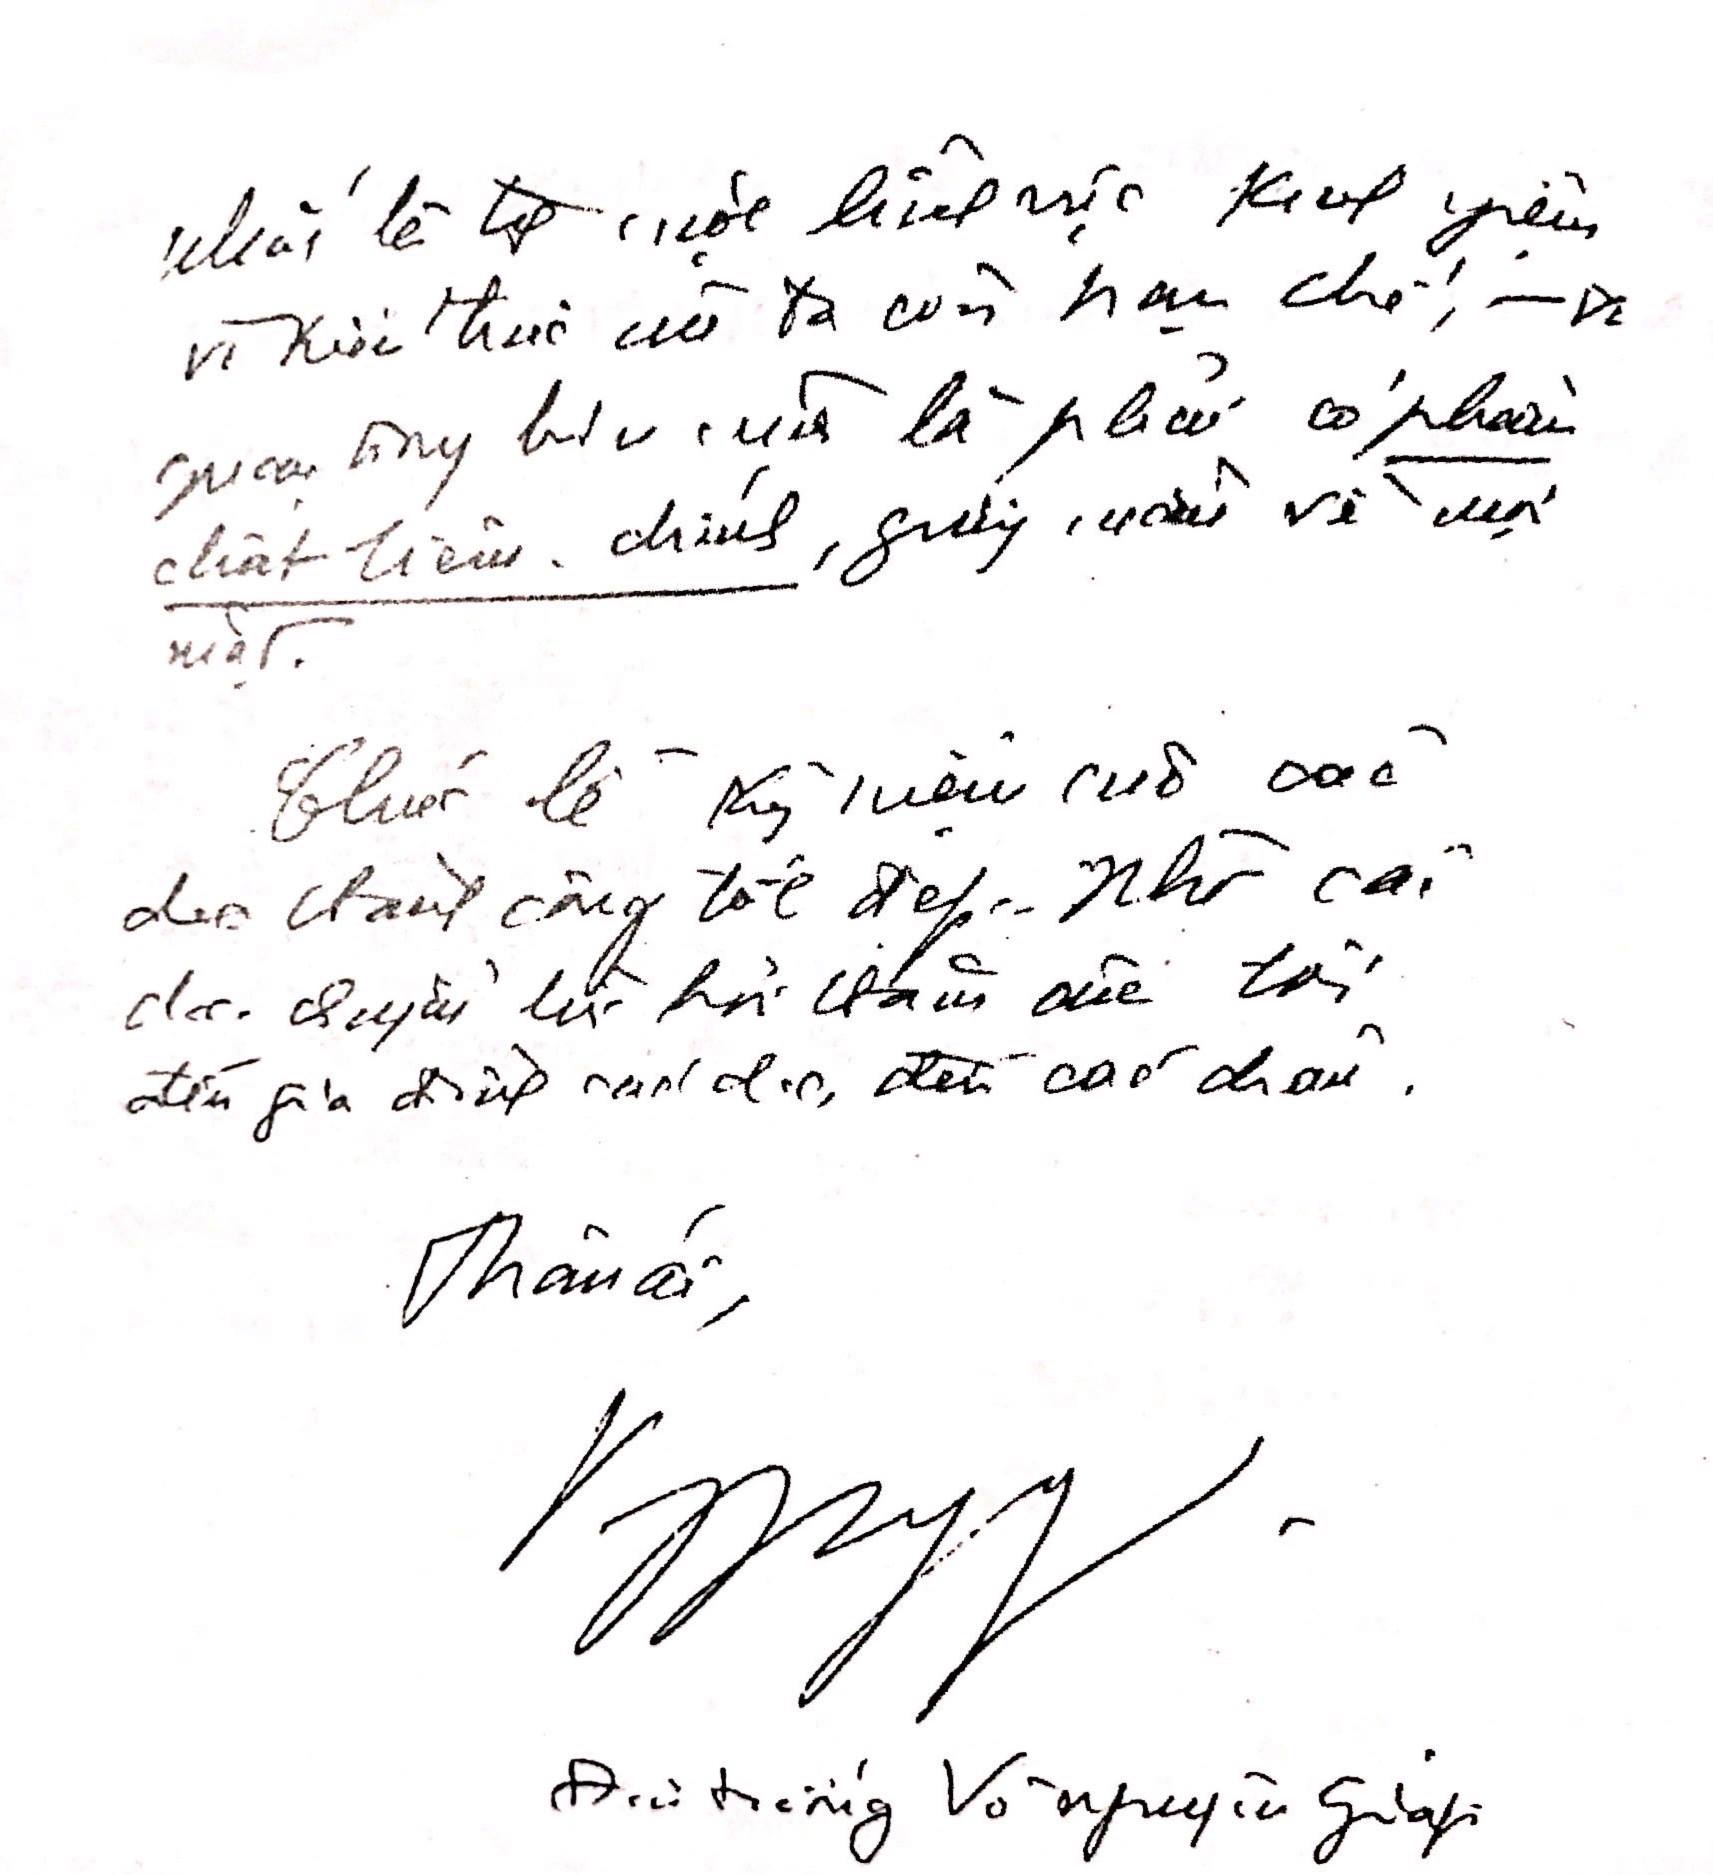 nhất là từ một lĩnh vực kinh nghiệm
và kiến thức mà ta còn hạn chế, — và
quan trọng hơn nữa là phải có phẩm
chất liêm chính, gương mẫu về mọi
mặt.
Chúc lễ kỷ niệm của các
đ/c thành công tốt đẹp. Nhờ các
đ/c chuyển lời hỏi thăm của tôi
đến gia đình các đ/c, đến các cháu.
Thân ái,
Đại tướng Võ Nguyên Giáp